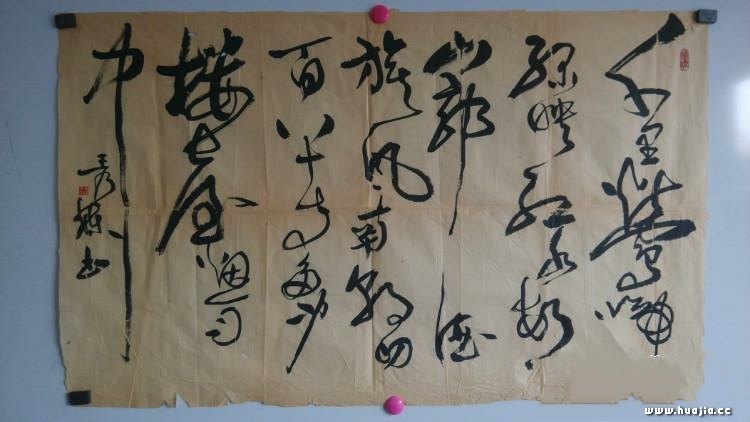 千里鶯啼
綠映紅水村
山郭酒
旗風南朝四
百八十寺多少
樓臺烟雨
中
秀 书
www.huajia.cc